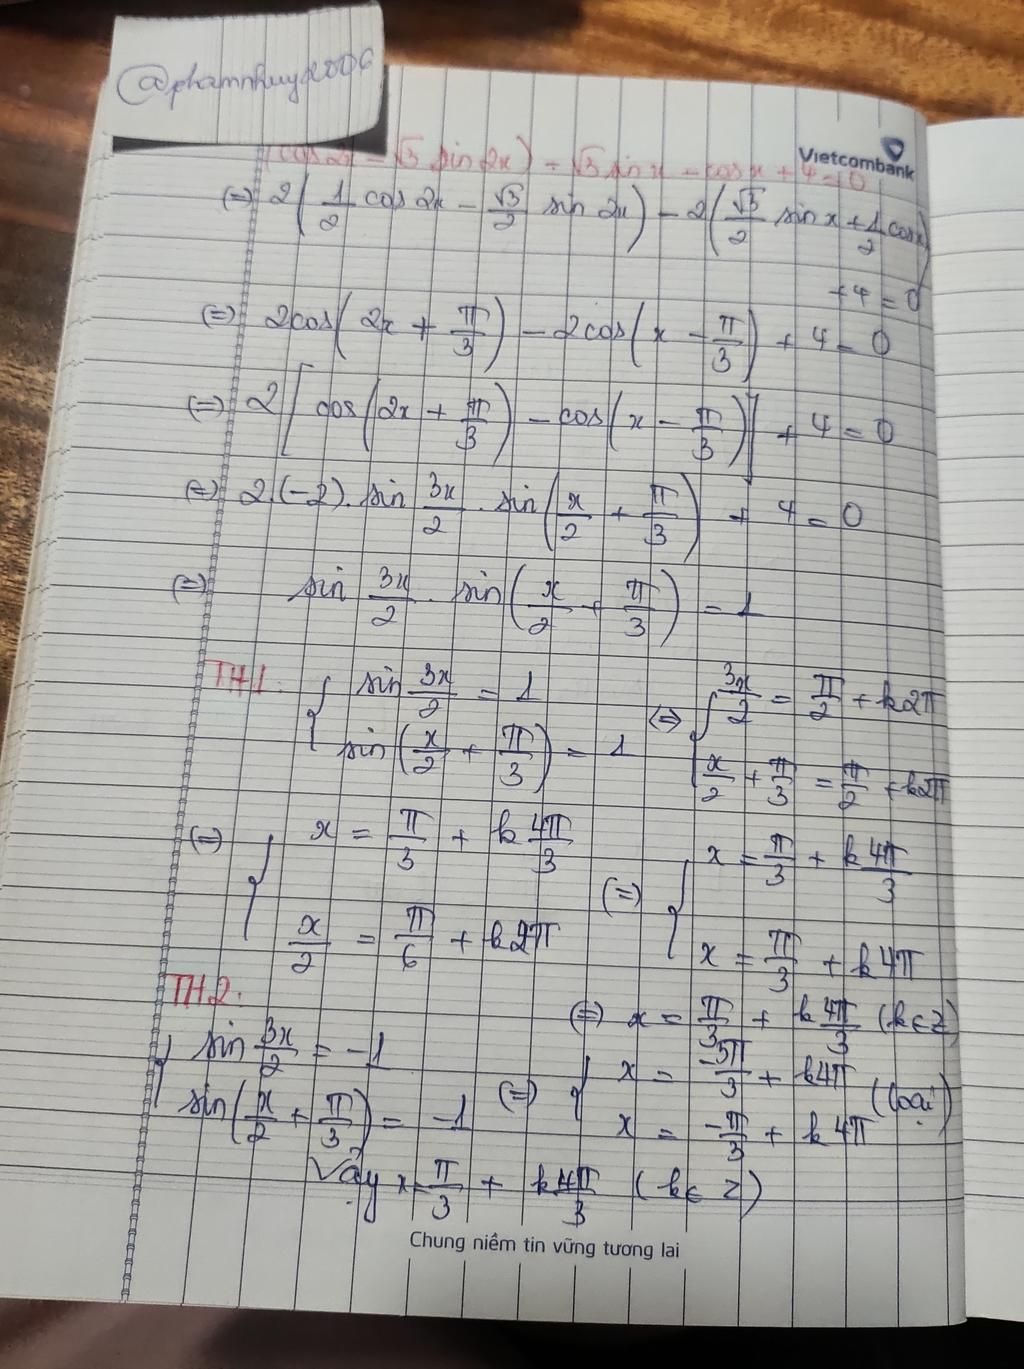 @phamnhuy2006
Vietcombank
(cos 2x - √3 sin 2x) - √3 sin x - cos x + 4 = 0
(=) 2(1/2 cos 2x - √3/2 sin 2x) - 2(√3/2 sin x + 1/2 cos x)
+ 4 = 0
(=) 2cos(2x + π/3) - 2cos(x - π/3) + 4 = 0
(=) 2[cos(2x + π/3) - cos(x - π/3)] + 4 = 0
(=) 2(-2). sin 3x/2 . sin(x/2 + π/3) + 4 = 0
(=) sin 3x/2 . sin(x/2 + π/3) = 1
TH1: { sin 3x/2 = 1
sin(x/2 + π/3) = 1
(=) { 3x/2 = π/2 + k2π
x/2 + π/3 = π/2 + k2π
(=) { x = π/3 + k4π/3
x/2 = π/6 + k2π
(=) { x = π/3 + k4π/3
x = π/3 + k4π
(=) x = π/3 + k4π/3 (k∈Z)
TH2:
{ sin 3x/2 = -1
sin(x/2 + π/3) = -1
(=) { x = -5π/3 + k4π
x = -π/3 + k4π
(loại)
Vậy x = π/3 + k4π/3 (k∈Z)
Chung niềm tin vững tương lai